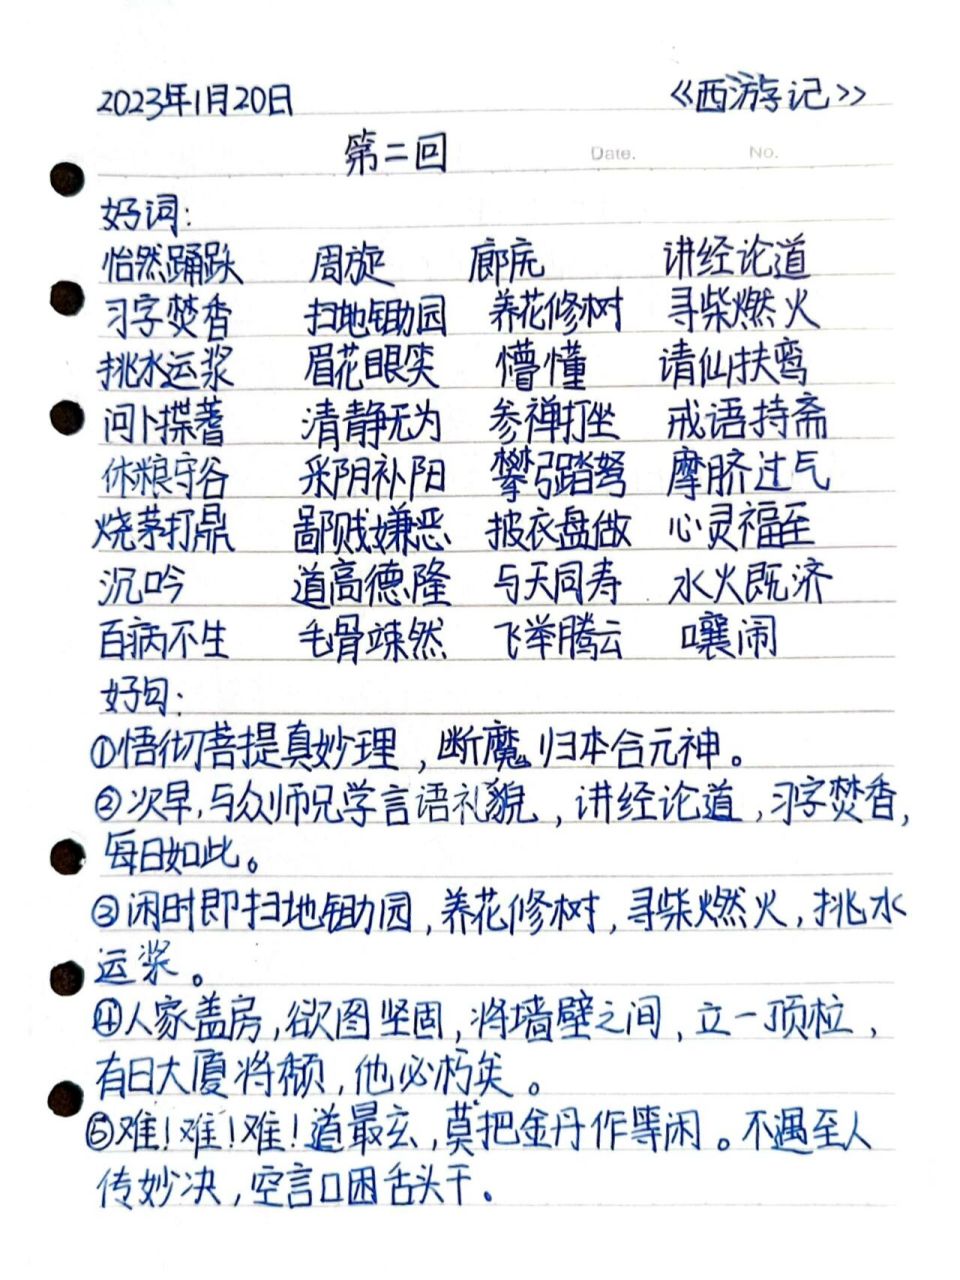 2023年1月20日 《西游记》
第二回 Date. No.
好词:
怡然踊跃 周旋 廊庑 讲经论道
习字焚香 扫地锄园 养花修树 寻柴燃火
挑水运浆 眉花眼笑 懵懂 请仙扶鸾
问卜揲蓍 清静无为 参禅打坐 戒语持斋
休粮守谷 采阴补阳 攀弓踏弩 摩脐过气
烧茅打鼎 鄙贱嫌恶 披衣盘做 心灵福至
沉吟 道高德隆 与天同寿 水火既济
百病不生 毛骨竦然 飞举腾云 嚷闹
好句:
①悟彻菩提真妙理,断魔归本合元神。
②次早,与众师兄学言语礼貌,讲经论道,习字焚香,
每日如此。
③闲时即扫地锄园,养花修树,寻柴燃火,挑水
运浆。
④人家盖房,欲图坚固,将墙壁之间,立一顶柱,
有日大厦将颓,他必朽矣。
⑤难!难!难!道最玄,莫把金丹作等闲。不遇至人
传妙决,空言口困舌头干。